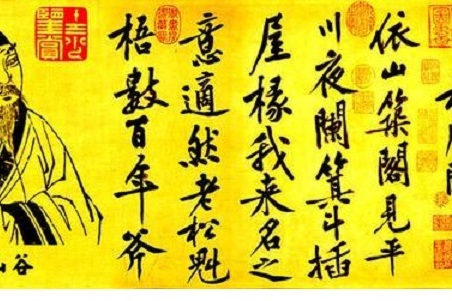 依山築閣見平
川夜闌箕斗插
屋椽我来名之
意適然老松魁
梧數百年斧
山谷